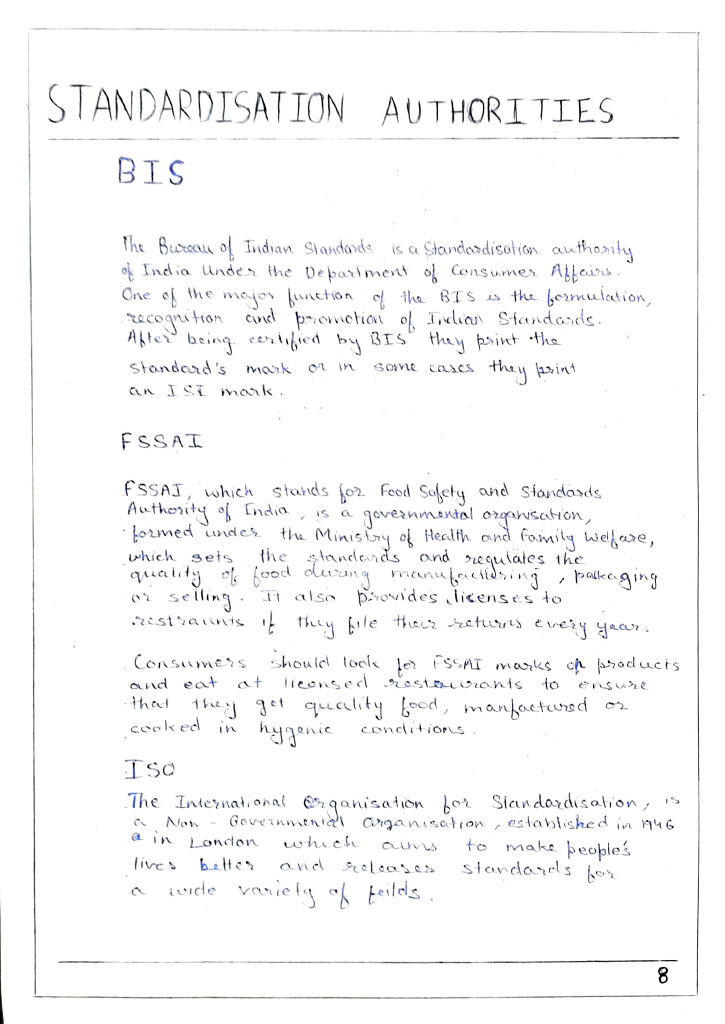 STANDARDISATION AUTHORITIES
BIS
The Bureau of Indian Standards is a Standardisation authority
of India Under the Department of Consumer Affairs.
One of the major function of the BIS is the formulation,
recognition and promotion of Indian Standards.
After being certified by BIS they print the
standard's mark or in some cases they print
an ISI mark.
FSSAI
FSSAI, which stands for Food Safety and Standards
Authority of India, is a governmental organisation,
formed under the Ministry of Health and Family Welfare,
which sets the standards and regulates the
quality of food during manufacturing, packaging
or selling. It also provides licenses to
restraunts if they file their returns every year.
Consumers should look for FSSAI marks on products
and eat at licensed restaurants to ensure
that they get quality food, manfactured or
cooked in hygenic conditions.
ISO
The International Organisation for Standardisation, is
a Non-Governmental Organisation, established in 1946
a in London which aims to make people's
lives better and releases standards for
a wide variety of feilds.
8